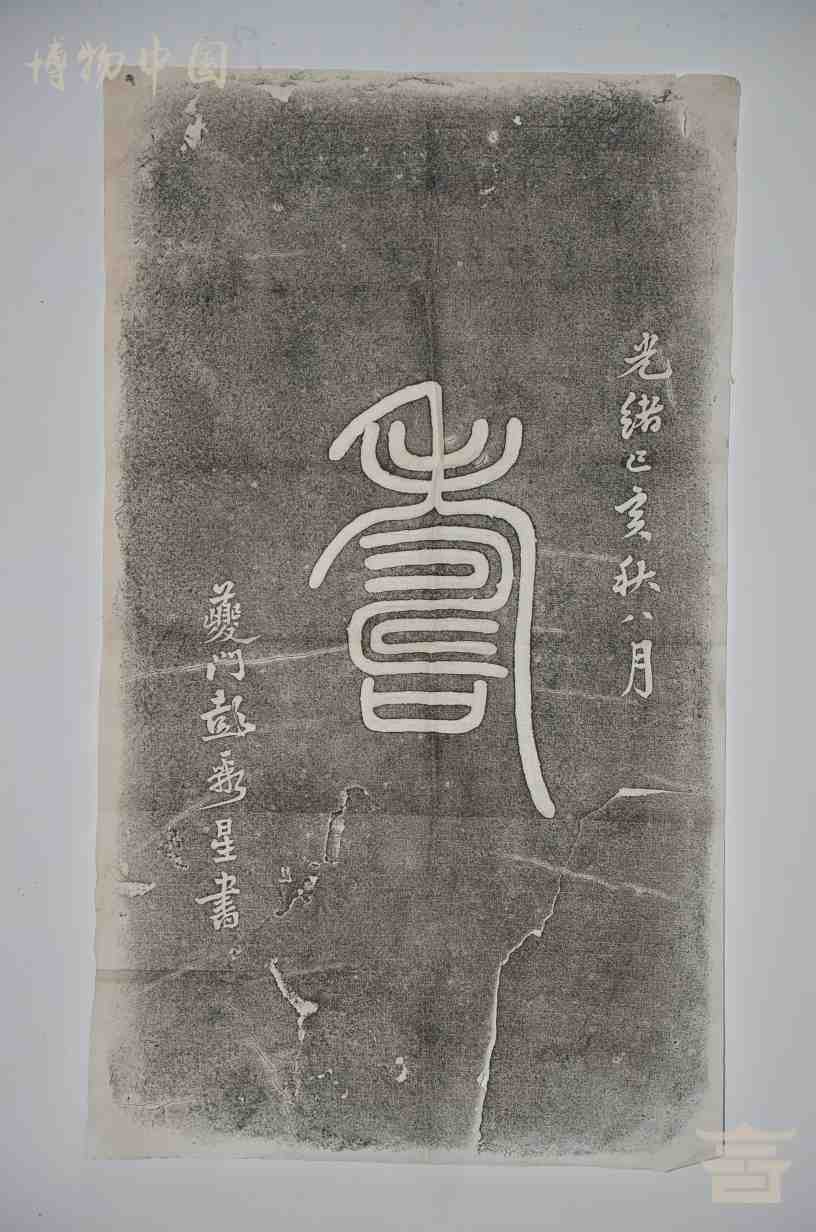 博物中国
光绪己亥秋八月
壽
夔門彭聚星書